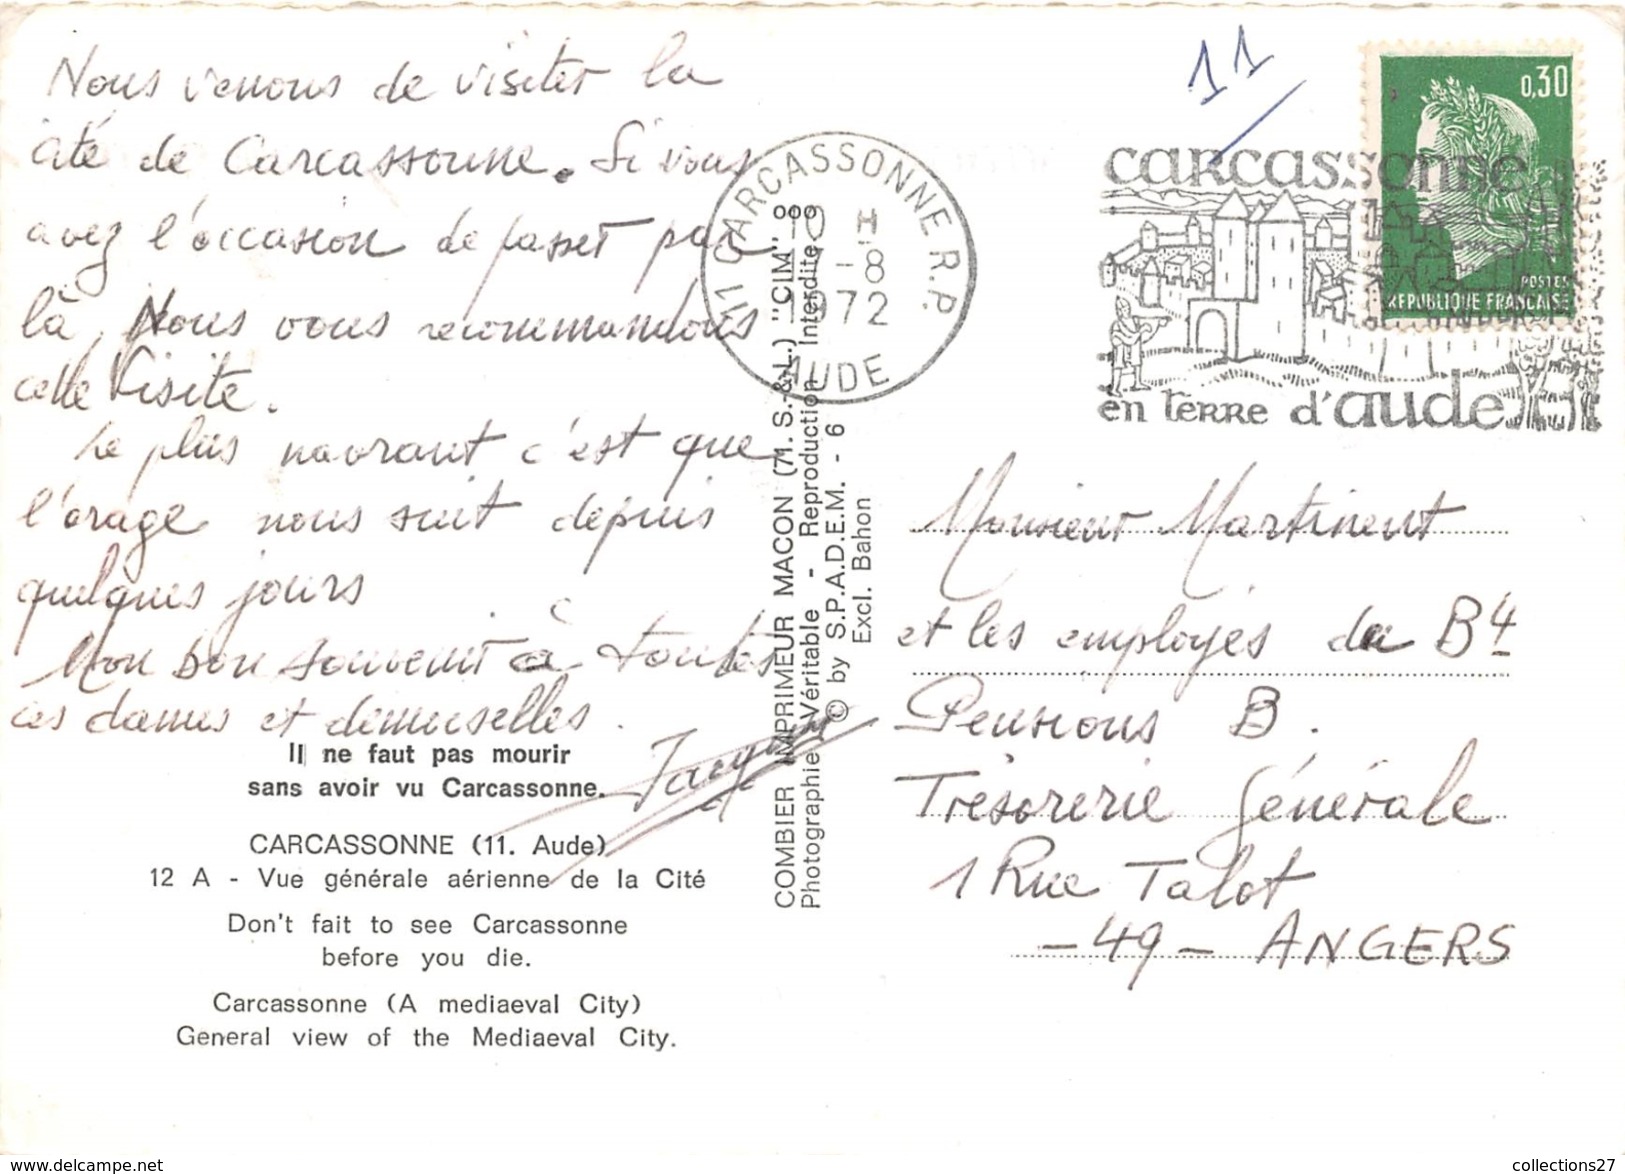 Nous venons de visiter la
cité de Carcassonne. Si vous
avez l'occasion de passer par
là, Nous vous recommandons
cette Visite.
Le plus navrant c'est que
l'orage nous suit depuis
quelques jours
Mon bon souvenir à toutes
ces dames et demoiselles.
Il ne faut pas mourir
sans avoir vu Carcassonne.
CARCASSONNE (11. Aude)
12 A - Vue générale aérienne de la Cité
Don't fait to see Carcassonne
before you die.
Carcassonne (A mediaeval City)
General view of the Mediaeval City.
COMBIER IMPRIMEUR MACON (71. S.-&-L.) "CIM"
Photographie Véritable - Reproduction Interdite
© by S.P.A.D.E.M. - 6
Excl. Bahon
11 CARCASSONNE R.P.
10 H
-8
1972
AUDE
11
carcassonne
en terre d'aude
0,30
POSTES
REPUBLIQUE FRANCAISE
Monsieur Martinent
et les employés du B4
Pensions B.
Trésorerie Générale
1 Rue Talot
-49- ANGERS
http://www.delcampe.net
collections27